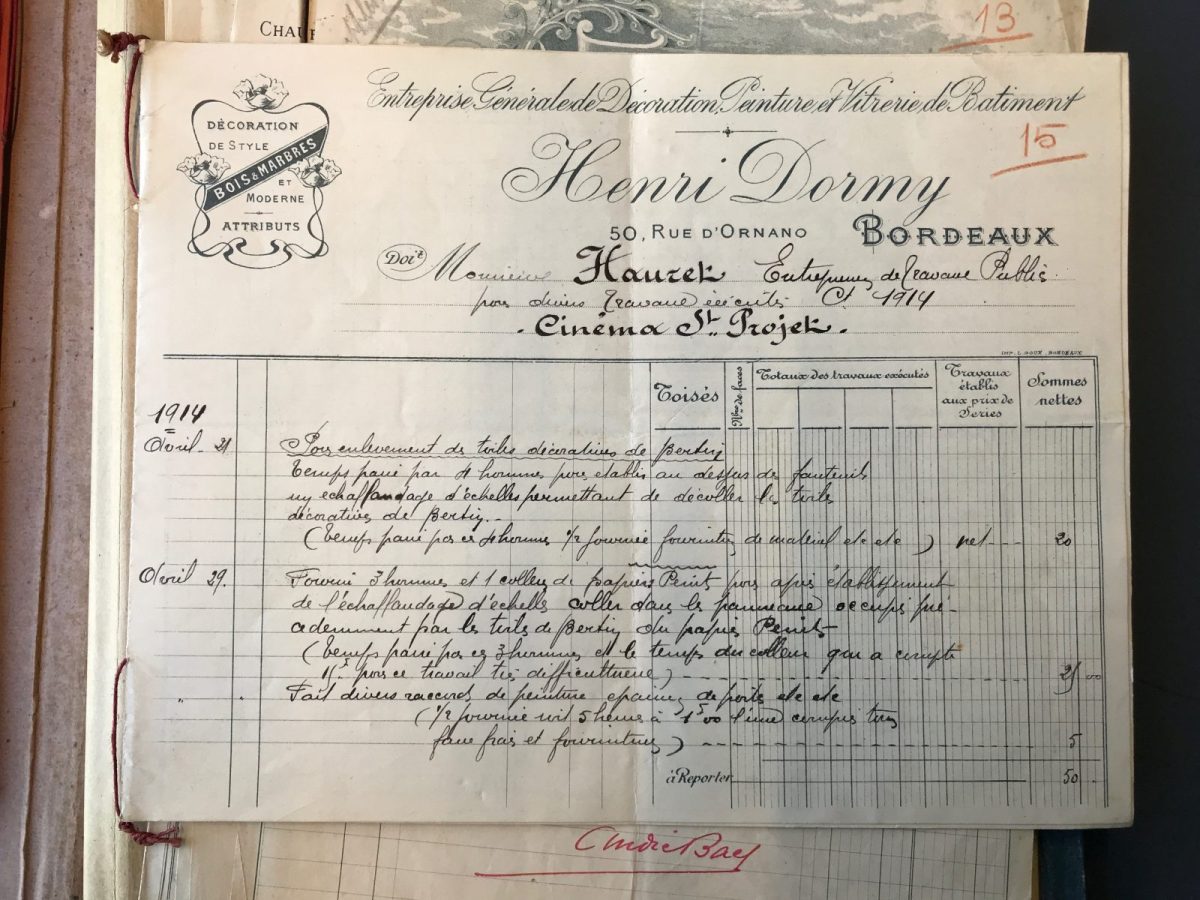 CHAUF
13
Entreprise Générale de Décoration, Peinture et Vitrerie de Batiment
15
DÉCORATION
DE STYLE
BOIS & MARBRES
ET
MODERNE
ATTRIBUTS
Henri Dormy
50, RUE D'ORNANO BORDEAUX
Doit Monsieur Hauret Entrepreneur de Travaux Publics
pour divers travaux éxécutés 1914
- Cinéma St. Projet -
IMP. L. ROUX, BORDEAUX
Toisés
Nbre de faces
Totaux des travaux exécutés
Travaux
établis
aux prix de
Series
Sommes
nettes
1914
Avril 21 Pour enlevement de toiles décoratives de
temps passé par 4 hommes pour etablir au dessus des fauteuils
un echaffaudage d'échelles permettant de décoller les toiles
décoratives de
(temps passé par ces 4 hommes 1/2 journée fournitures de matériel etc etc) net 20
Avril 29. Fourni 3 hommes et 1 colleur de papiers Peints pour après établissement
de l'échaffaudage d'échelles coller dans les panneaux occupés pré-
cedemment par les toiles de du papier Peints
(temps passé par ces 3 hommes et le temps du colleur qui a compté
pour ce travail très difficultueux) 25 00
" " Fait divers raccords de peinture de porte etc etc
(1/2 journée soit 5 heures à 1 00 l'une compris tous
faux frais et fournitures) 5
à Reporter 50
André Bac